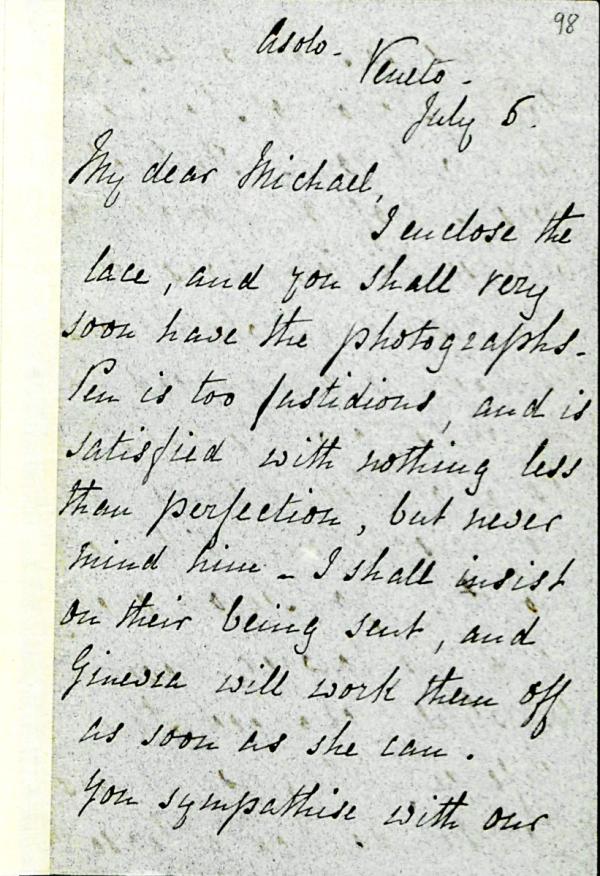 98
Asolo.
Veneto.
July 5.
My dear Michael,
I enclose the
lace, and you shall very
soon have the photographs.
Pen is too fastidious, and is
satisfied with nothing less
than perfection, but never
mind him - I shall insist
on their being sent, and
Ginevra will work them off
as soon as she can.
You sympathise with our